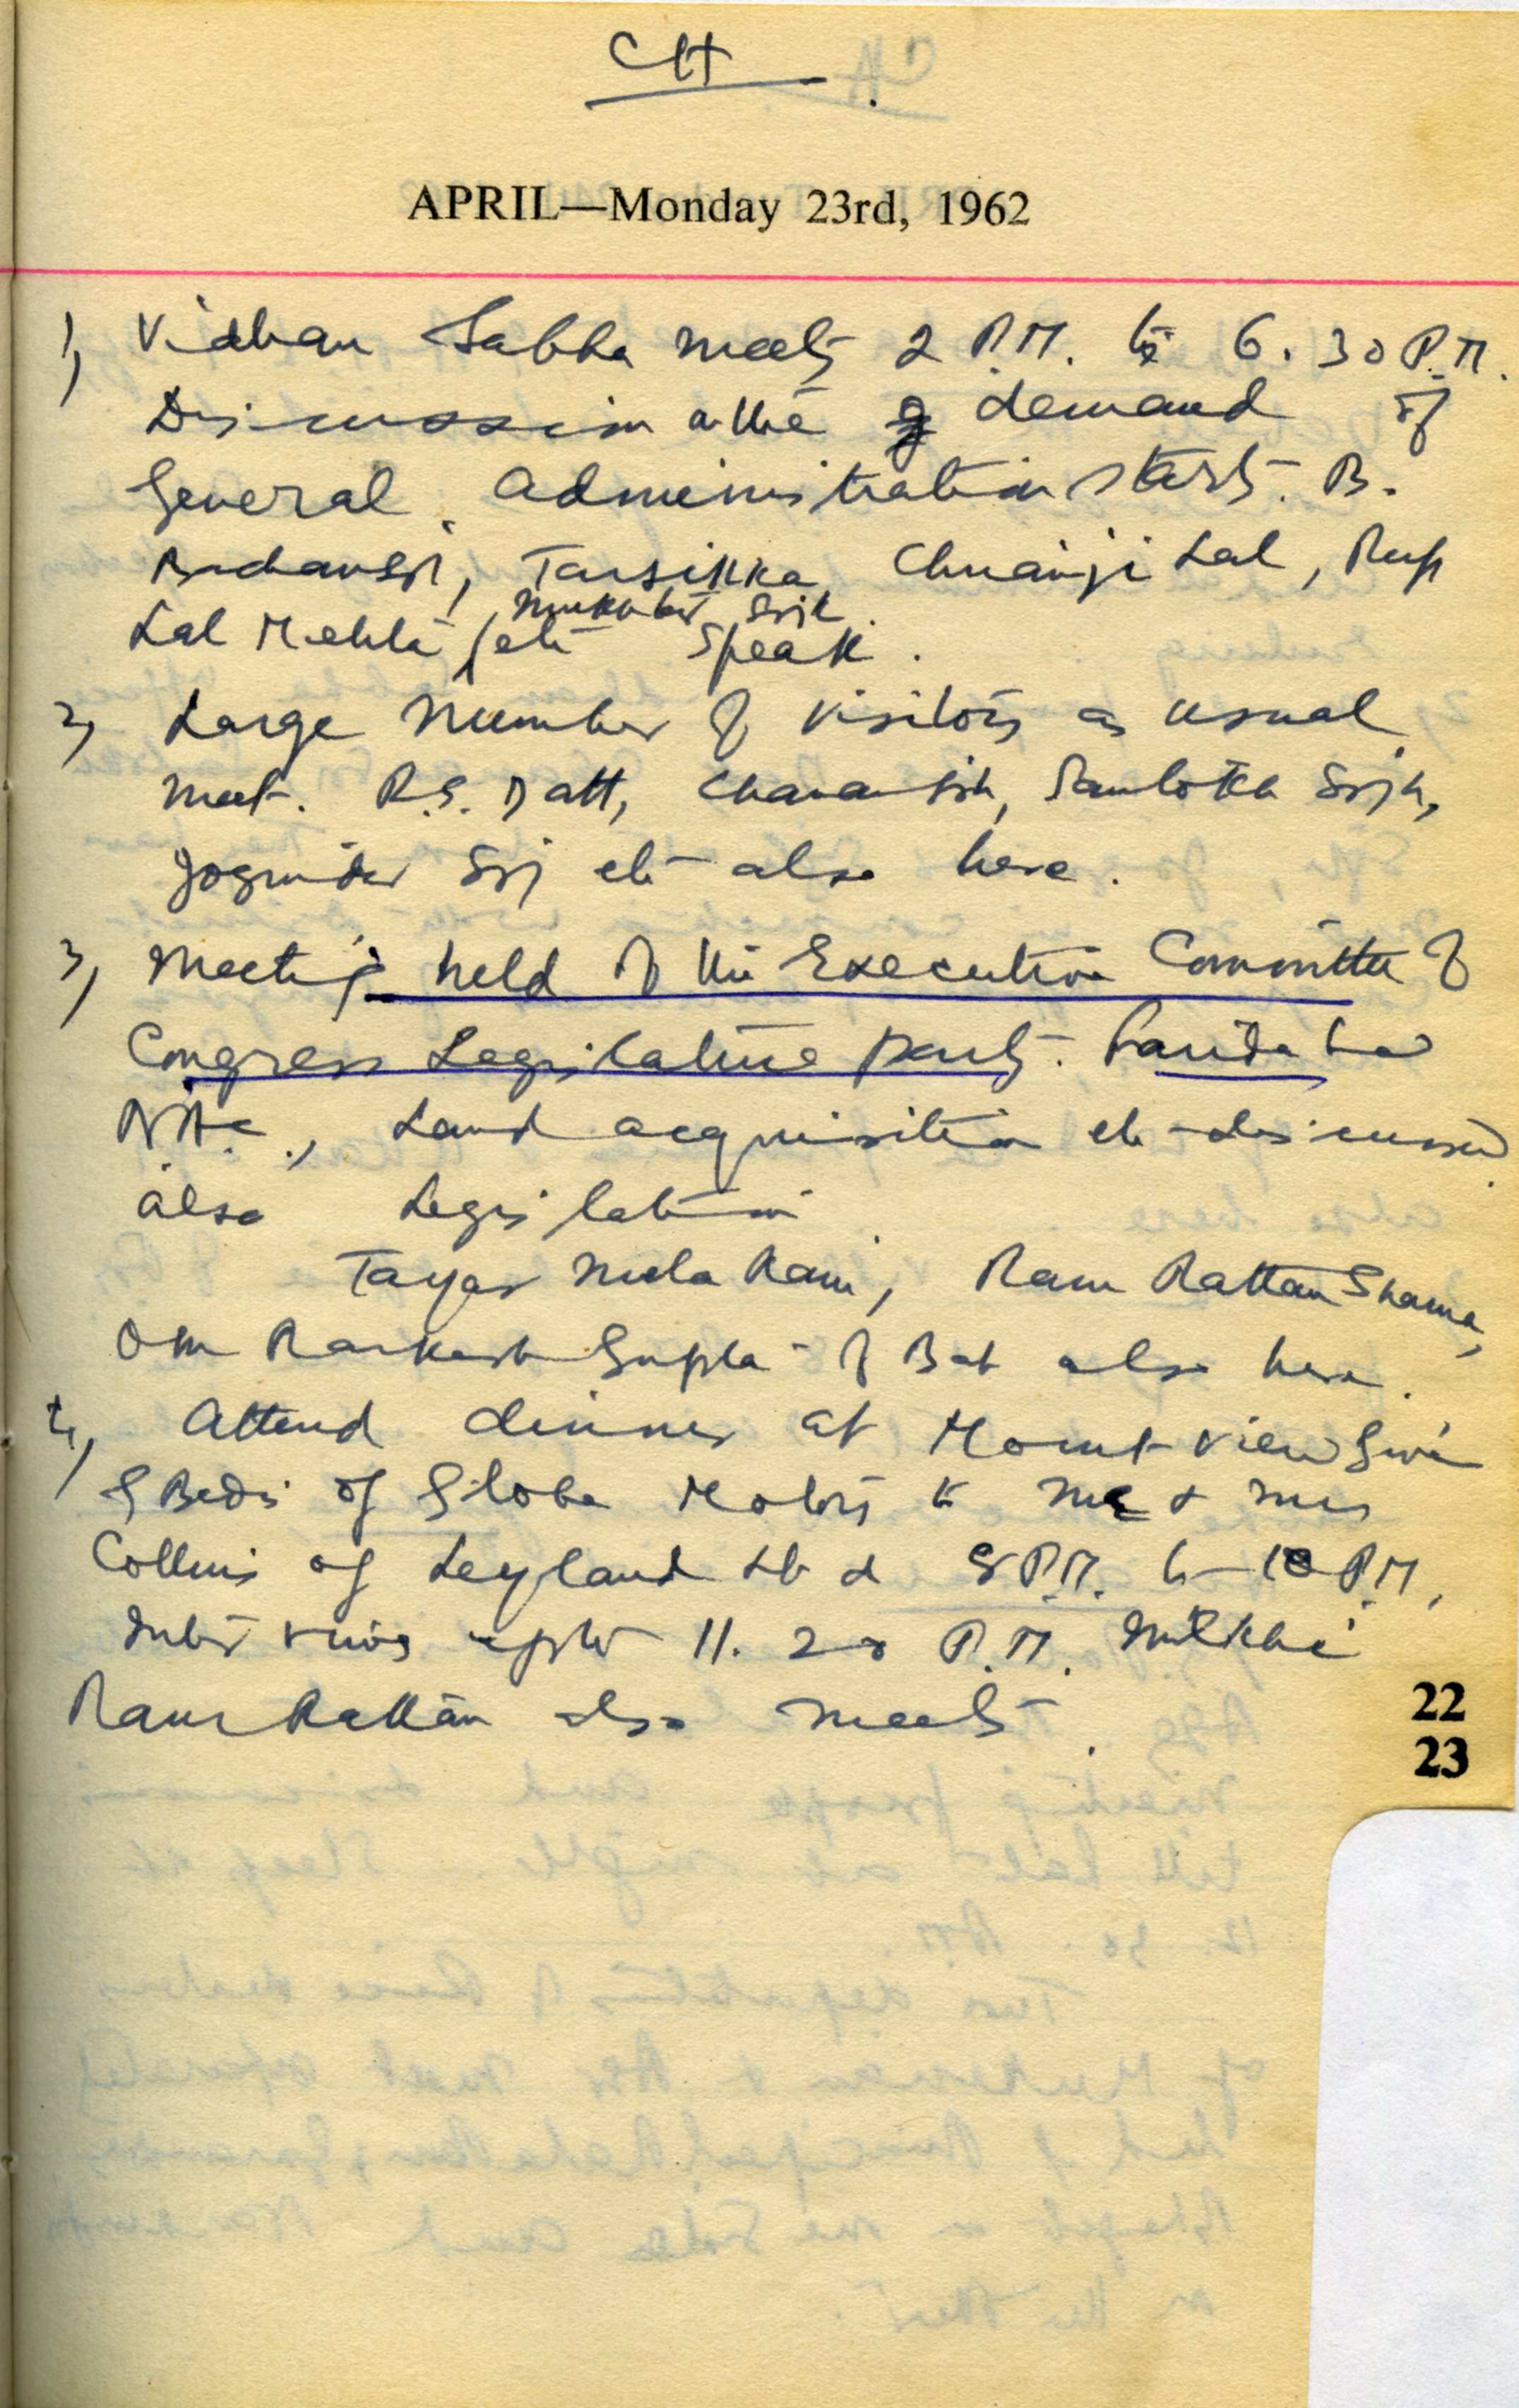 CH
APRIL—Monday 23rd, 1962
1, Vidhan Sabha meets 2 P.M. to 6.30 P.M.
Discussion on the demand of
General administration starts. B.
Tarsikka, Chiranji Lal, Rup
Lal Mehta etc speak.
2, Large number of visitors as usual
meet. R.S. Datt, Santokh
Joginder etc also here.
3, Meeting held of the Executive Committee of
Congress Legislative Party.
Land acquisition etc discussed
also Legislation
Tayar Mela Ram, Ram Rattan Sharma,
Om Parkash Gupta of Bat also here.
4, Attend dinner at Mount View given
by Bedi of Globe Motors to Mr & Mrs
Collins of Leyland 8 P.M. to 10 P.M.
upto 11.20 P.M.
Ram Rattan also meets
22
23